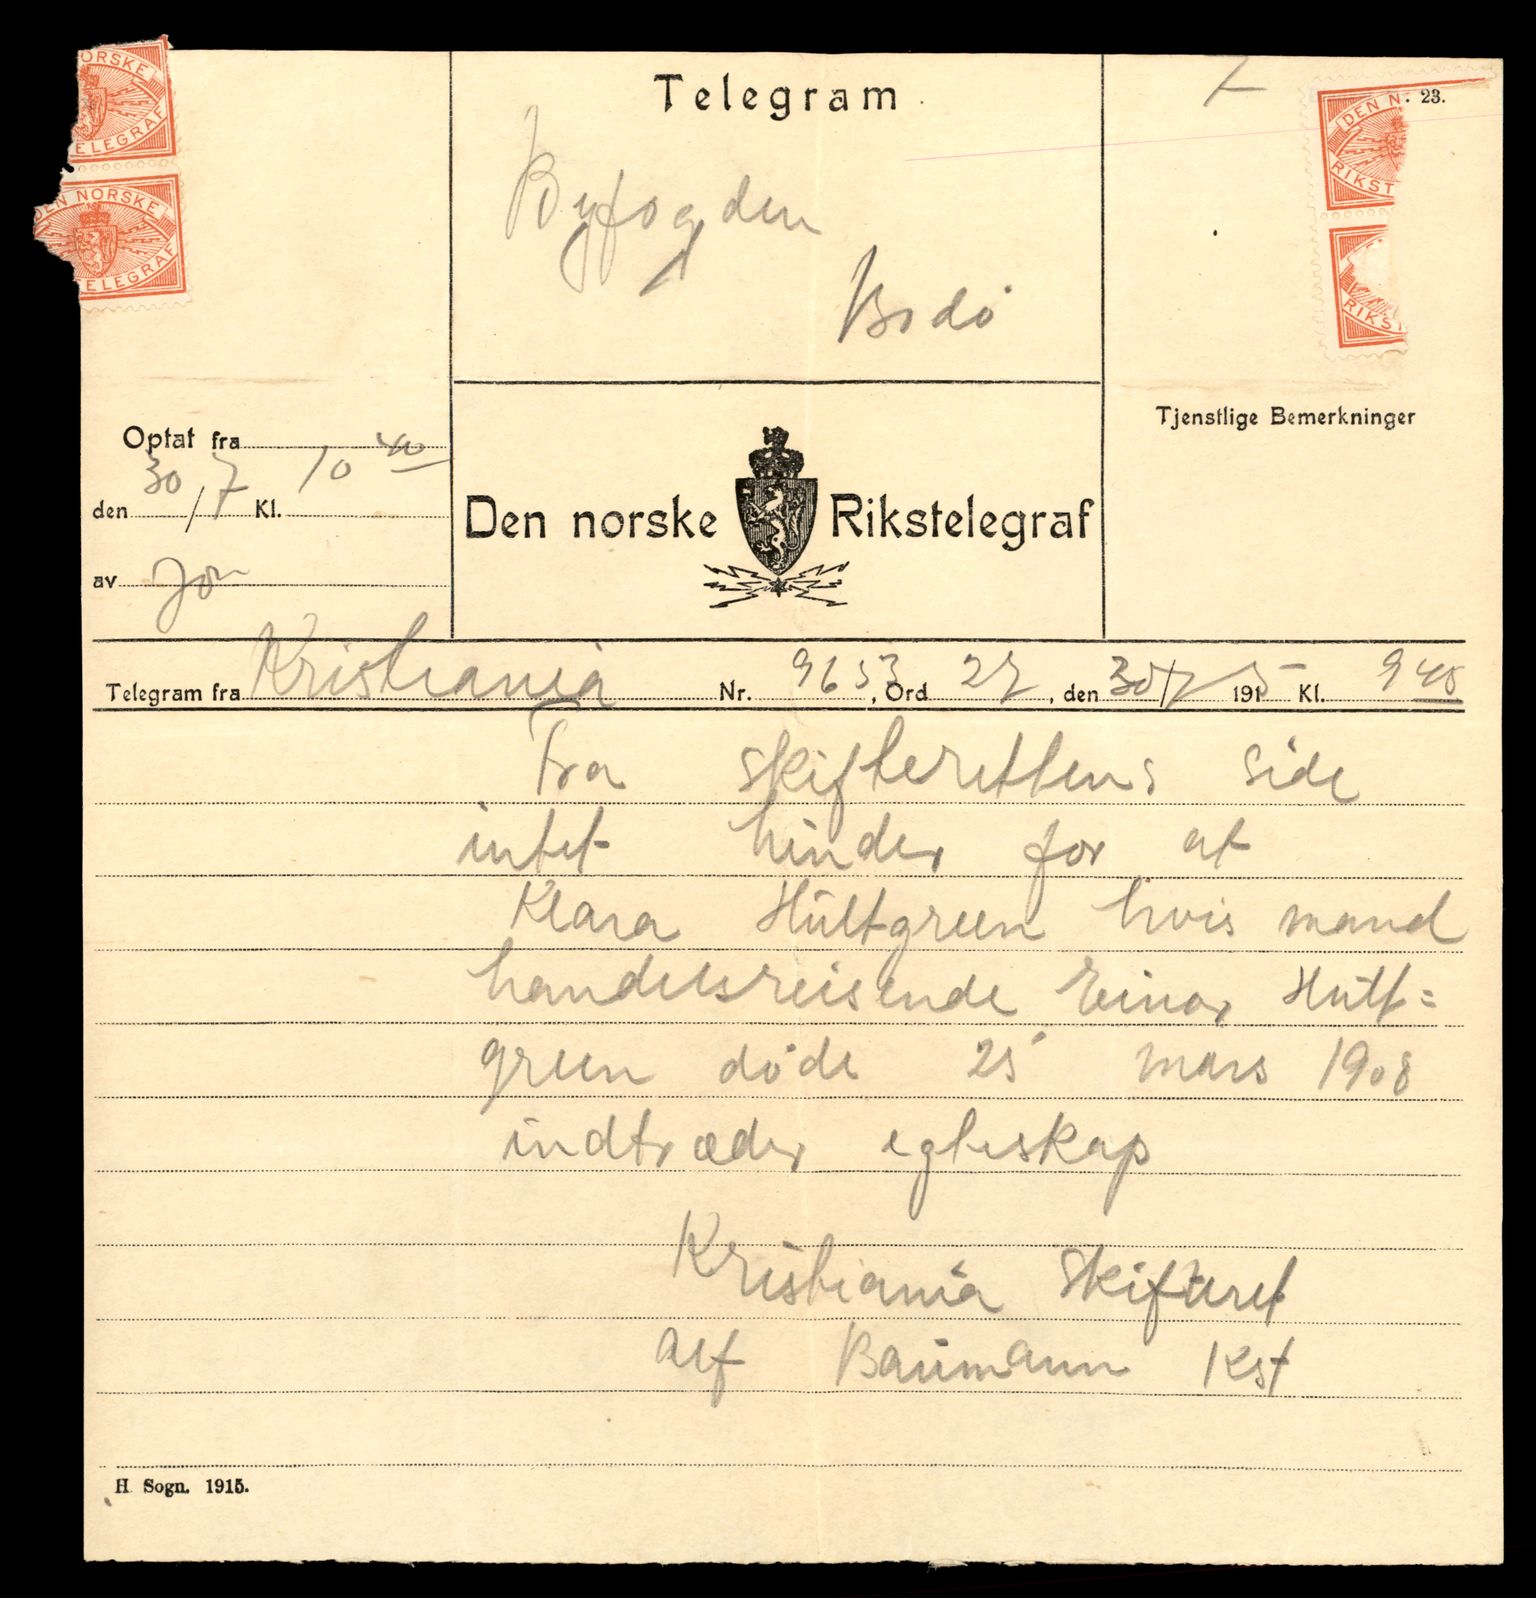 DEN NORSKE
TELEGRAF
DEN NORSKE
TELEGRAF
Telegram
Byfogden
Bodø
DEN N
RIKST
RIKST
23.
Optat fra
den 30/7 Kl. 10 40
av
Den norske Rikstelegraf
Tjenstlige Bemerkninger
Telegram fra Kristiania Nr. 9653, Ord 27, den 30/7 1915 Kl. 9 40
Fra skifterettens side
intet hinder for at
Klara Hultgreen hvis mand
handelsreisende Einar Hult=
green døde 25 mars 1908
indtræder egteskap
Kristiania Skifteret
Alf Baumann Kst
H. Sogn. 1915.